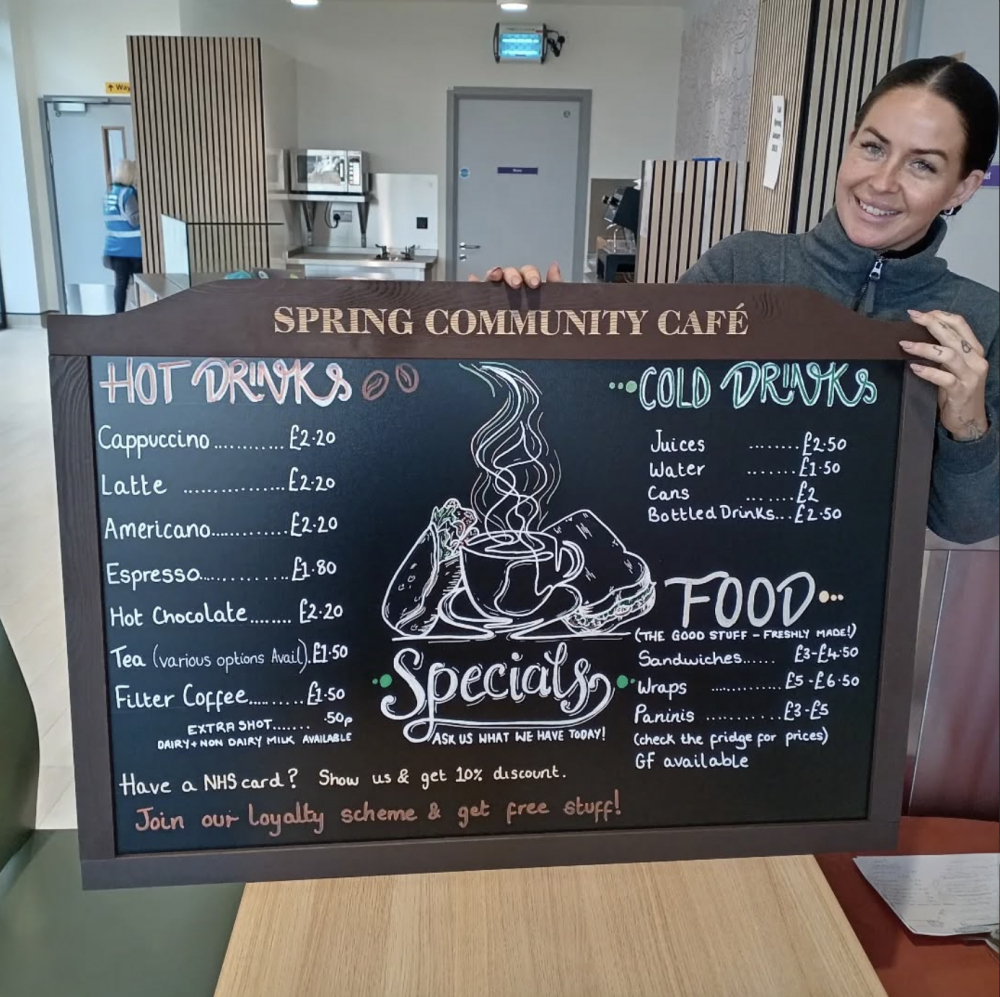 Way
SPRING COMMUNITY CAFÉ
HOT DRINKS
Cappuccino..........£2.20
Latte ...............£2.20
Americano............£2.20
Espresso............£1.80
Hot Chocolate........£2.20
Tea (various options Avail).£1.50
Filter Coffee.........£1.50
EXTRA SHOT...... .50p
DAIRY + NON DAIRY MILK AVAILABLE
Specials
ASK US WHAT WE HAVE TODAY!
COLD DRINKS
Juices .......£2.50
Water .......£1.50
Cans .......£2
Bottled Drinks...£2.50
FOOD
(THE GOOD STUFF - FRESHLY MADE!)
Sandwiches...... £3-£4.50
Wraps ............£5-£6.50
Paninis ...........£3-£5
(check the fridge for prices)
GF available
Have a NHS card? Show us & get 10% discount.
Join our loyalty scheme & get free stuff!